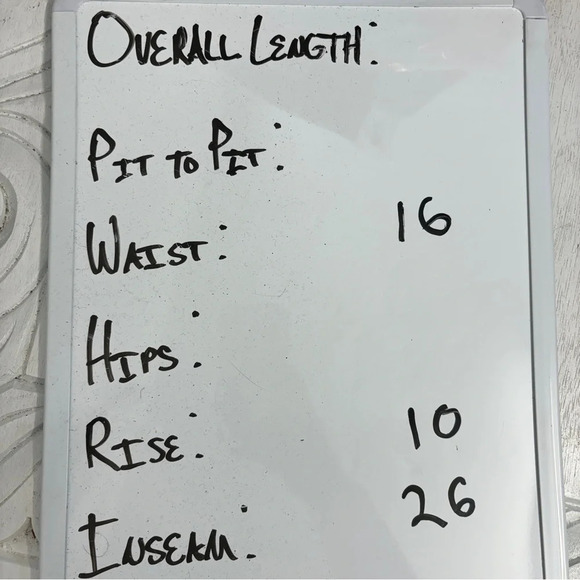 OVERALL LENGTH:
PIT TO PIT:
WAIST: 16
HIPS:
RISE: 10
INSEAM: 26